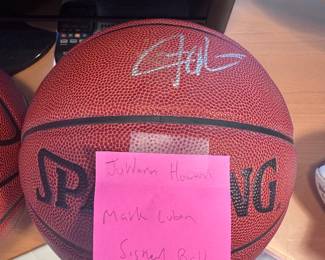 SPA NG
JuWann Howard
Mark Cuban
Signed Ball